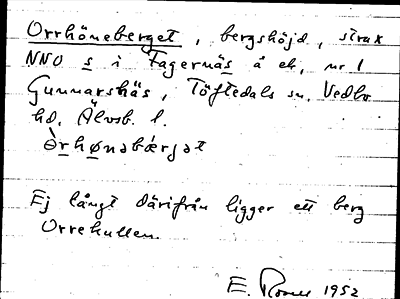 Orrhöneberget, bergshöjd, strax
NNO s i Fagernäs å ek. nr 1
Gunnarsnäs, Töftedals sn, Vedbo
hd, Älvsb. l.
Ej långt därifrån ligger ett berg
Orrekullen.
E. 1952